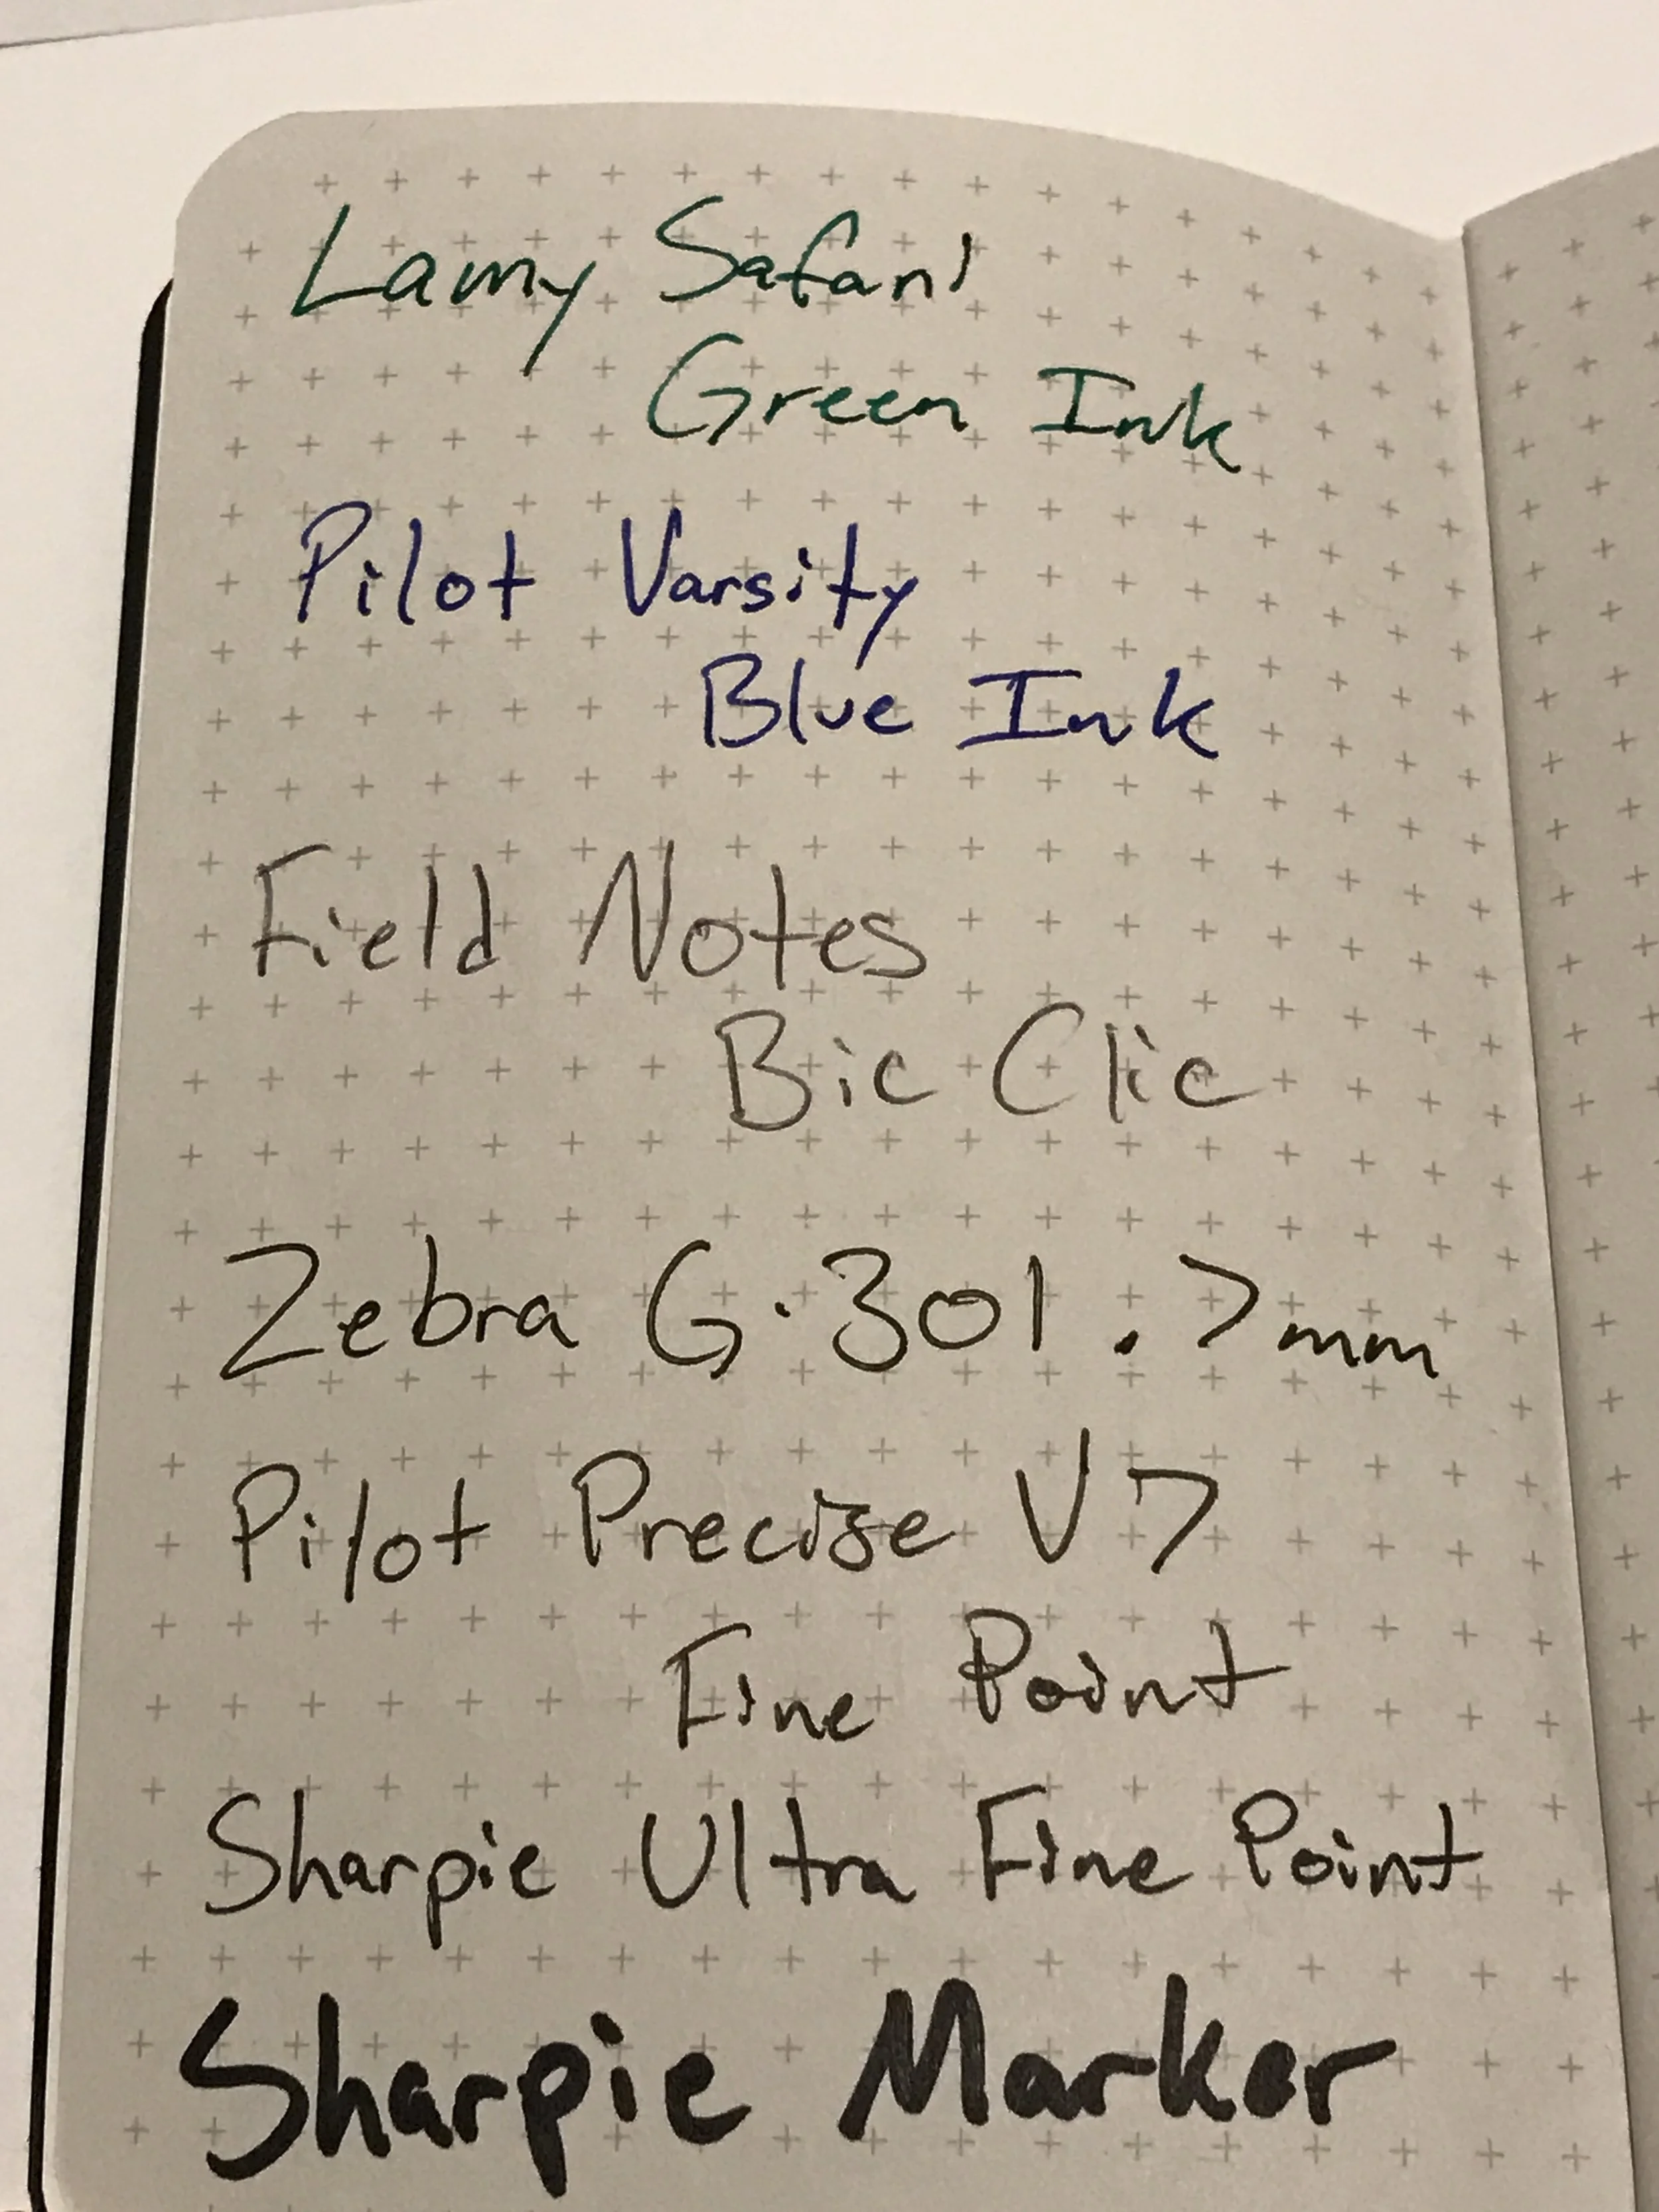 Lamy Safari
Green Ink
Pilot Varsity
Blue Ink
Field Notes
Bic Clic
Zebra G-301 .7mm
Pilot Precise V7
Fine Point
Sharpie Ultra Fine Point
Sharpie Marker